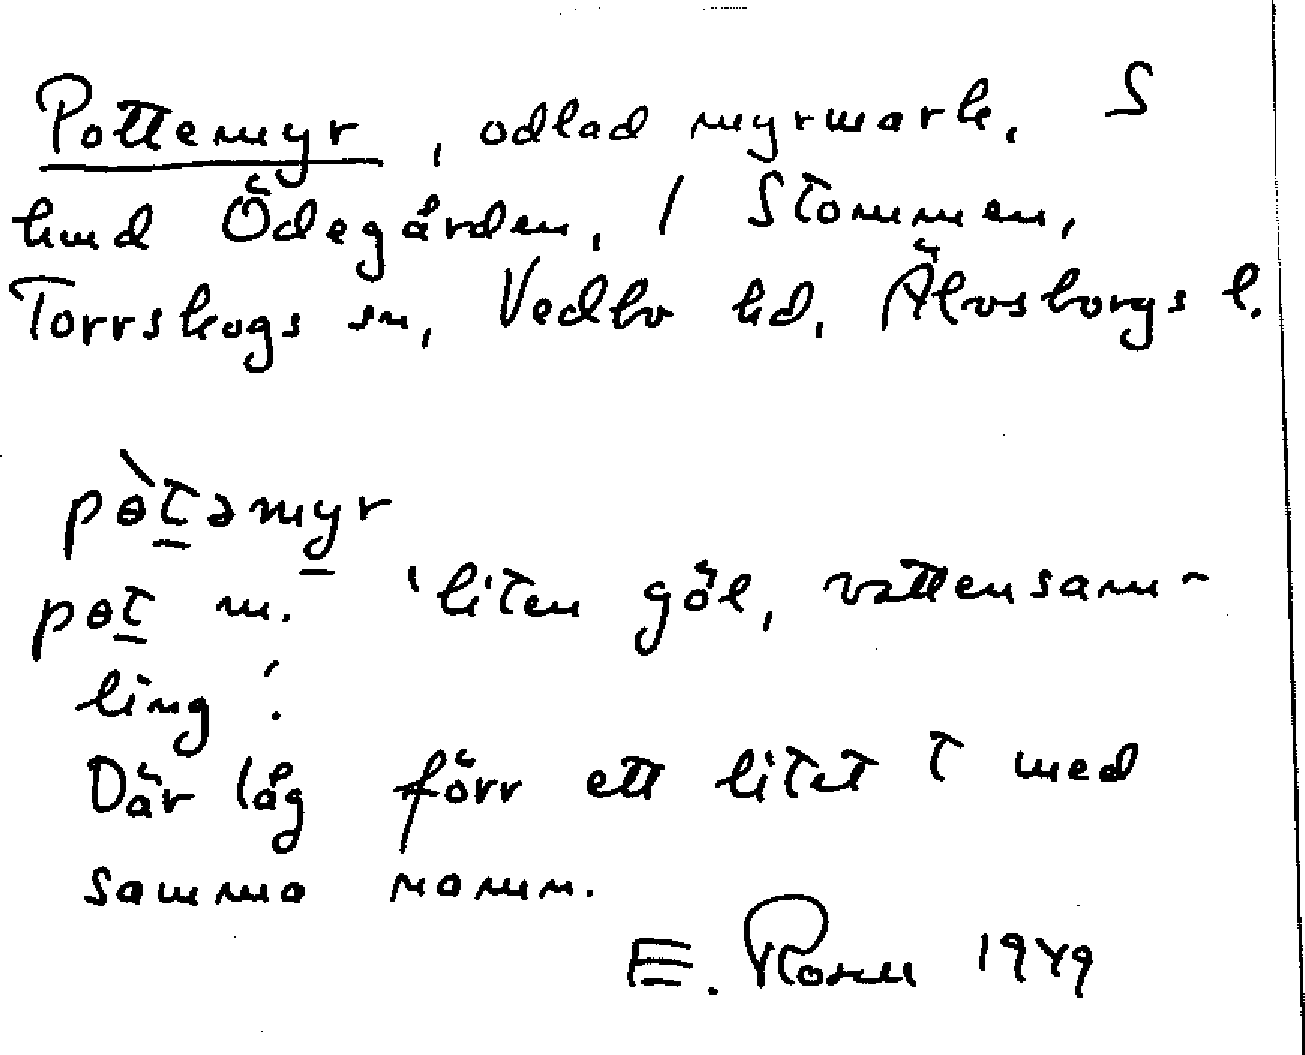 Pottemyr, odlad myrmark, S
hmd Ödegården, / Stommen,
Torrskogs sn, Vedbo hd, Älvsborgs l.
pɵ̀təmyr
pɵt m. 'liten göl, vattensam-
ling'.
Där låg förr ett litet t med
samma namn.
E. 1949